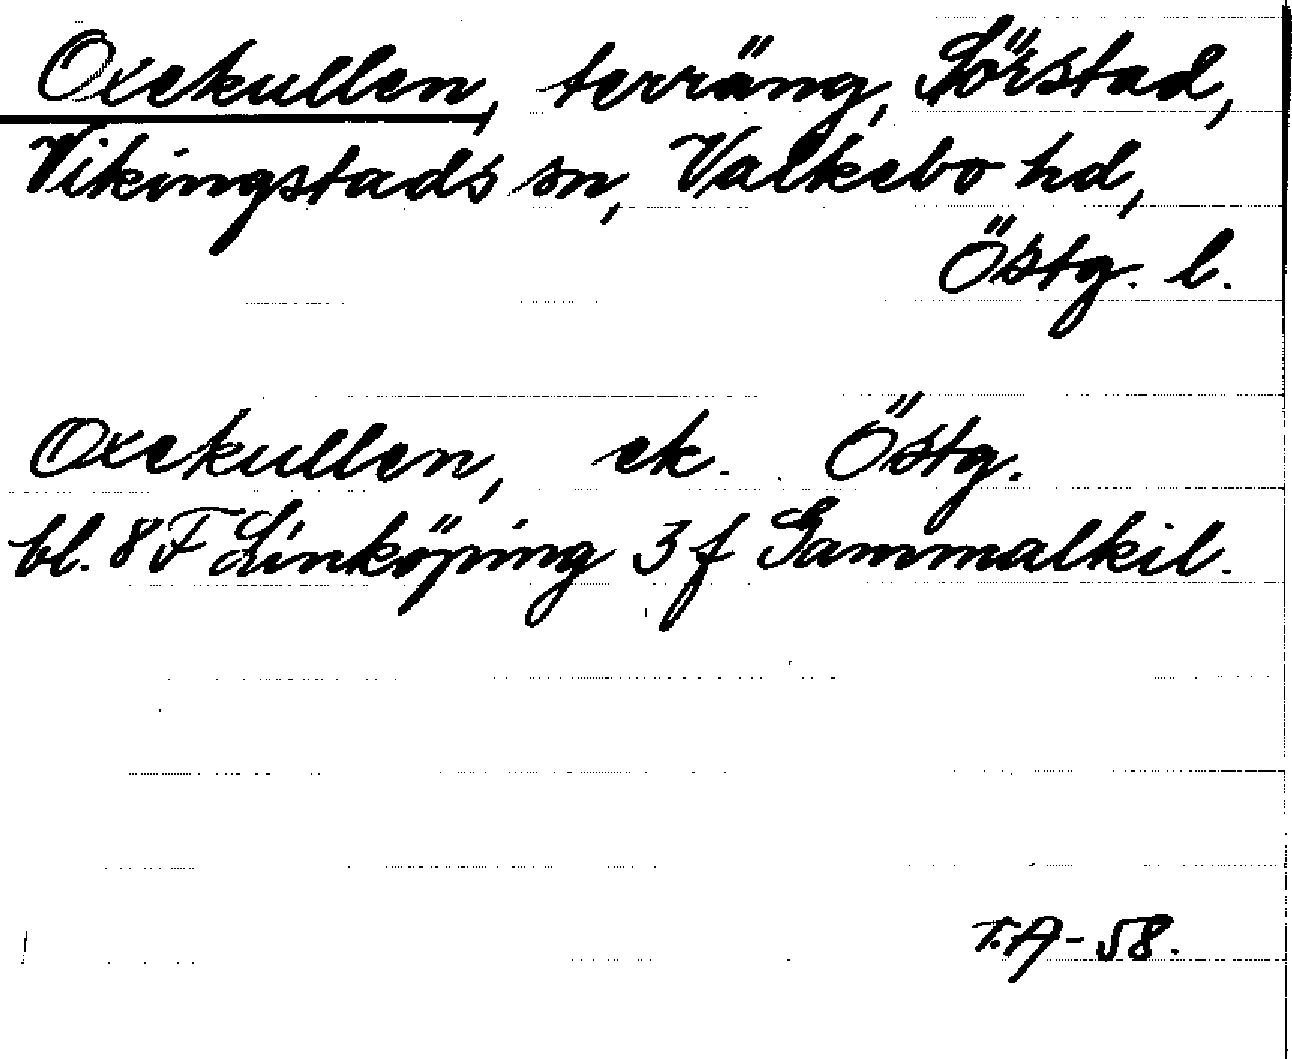 Oxekullen, terräng, Sörstad,
Vikingstads sn, Valkebo hd,
Östg. l.
Oxekullen, ek. Östg.
bl. 8 F Linköping 3 f Gammalkil.
T.A-58.